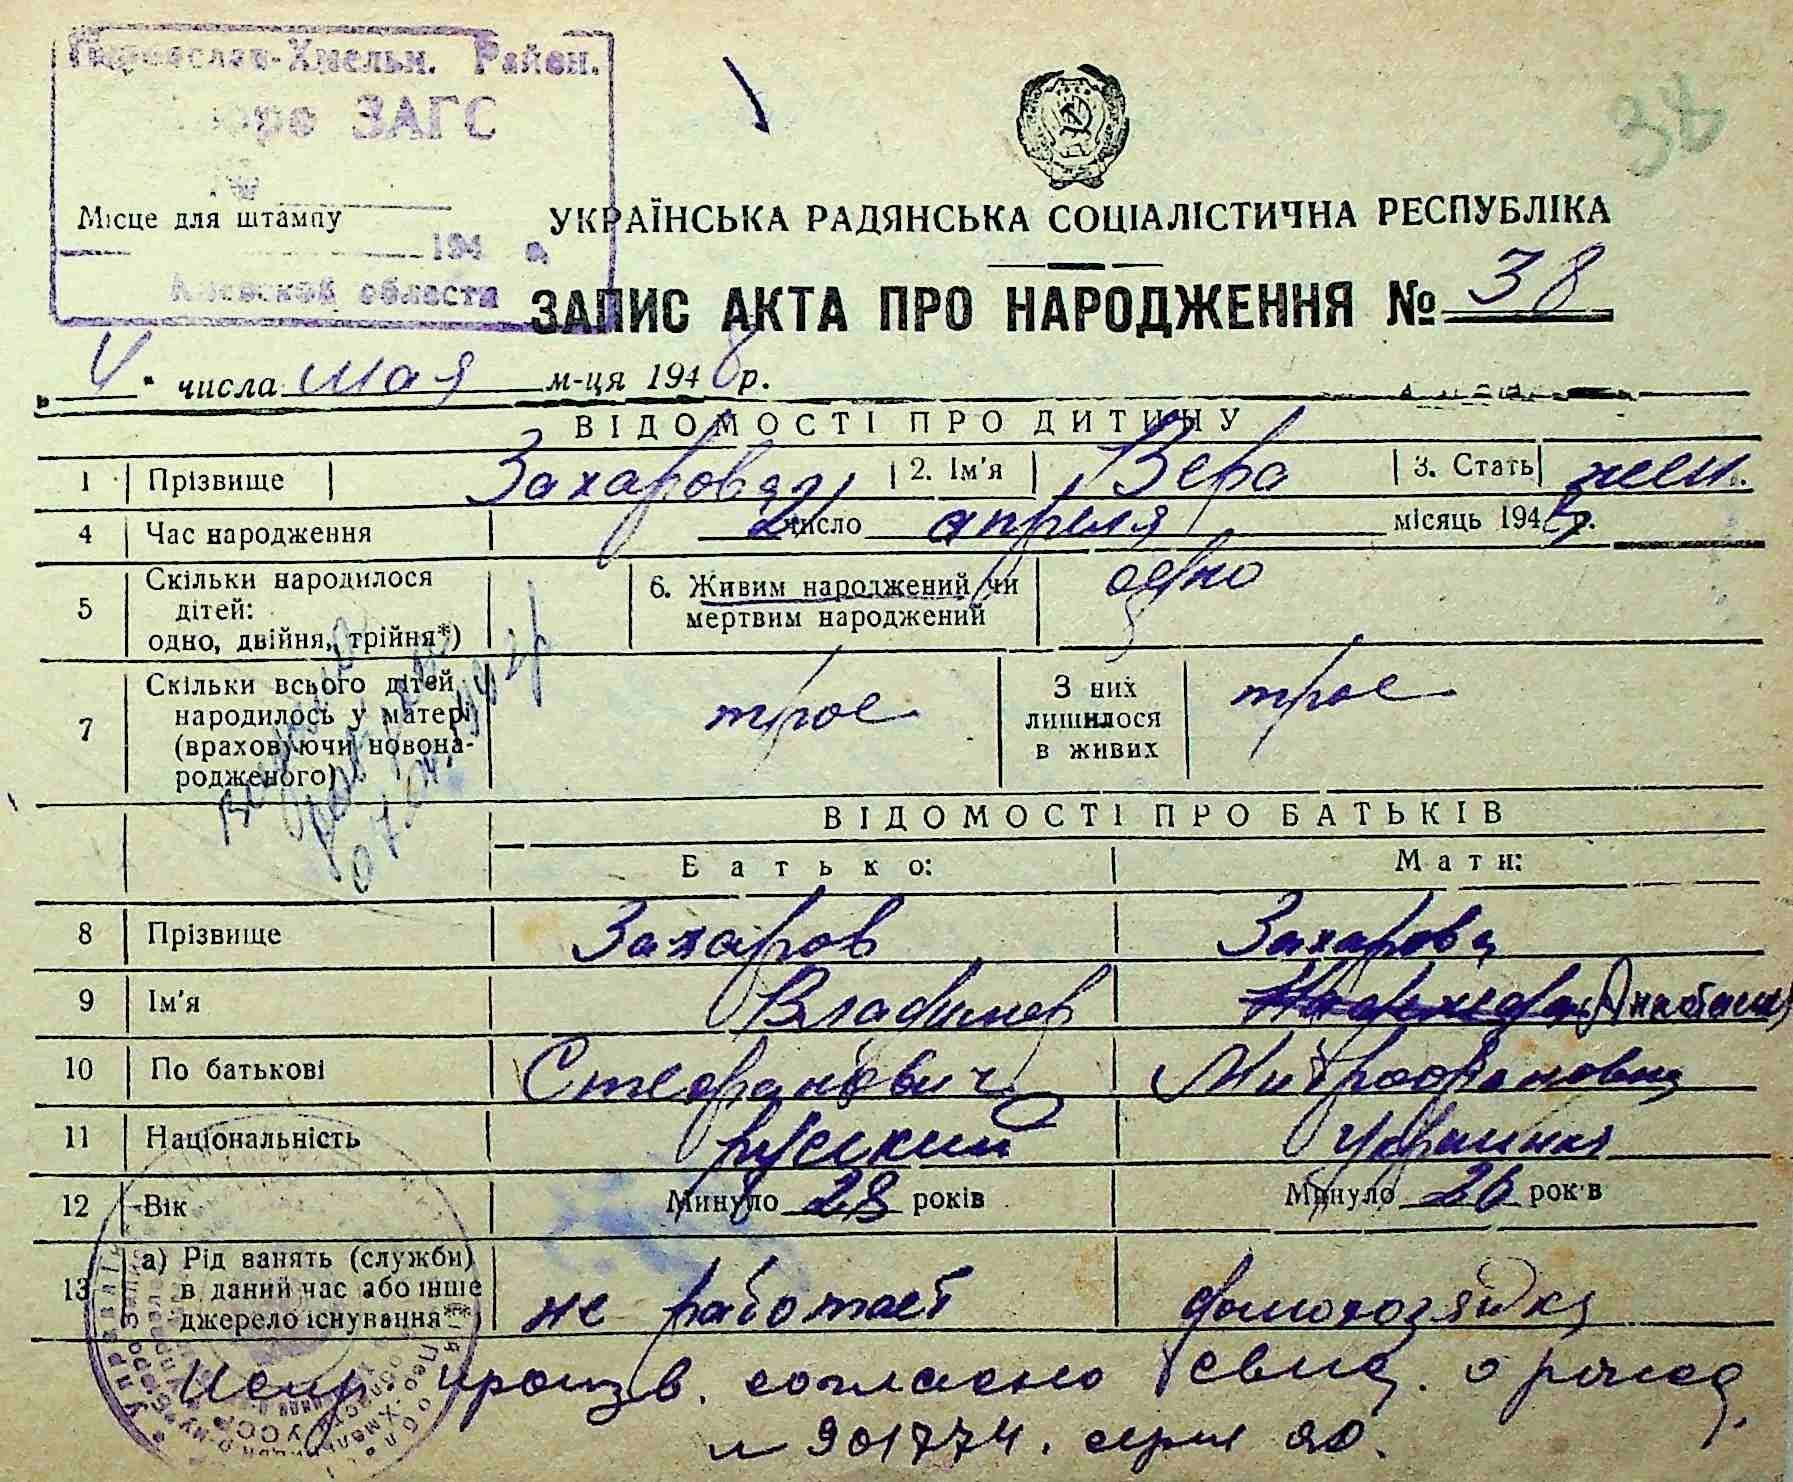 Переяслав-Хмельн. Район.
Бюро ЗАГС
Місце для штампу
194 г.
Киевской области
38
УКРАЇНСЬКА РАДЯНСЬКА СОЦІАЛІСТИЧНА РЕСПУБЛІКА
ЗАПИС АКТА ПРО НАРОДЖЕННЯ № 38
„ 4 " числа мая м-ця 1948 р.
ВІДОМОСТІ ПРО ДИТИНУ
1 Прізвище Захарова 2. Ім'я Вера 3. Стать жен.
4 Час народження 21 число апреля місяць 194 р.
5 Скільки народилося дітей: одно, двійня, трійня*) 6. Живим народжений чи мертвим народжений одно
7 Скільки всього дітей народилось у матері (враховуючи новонародженого) трое З них лишилося в живих трое
ВІДОМОСТІ ПРО БАТЬКІВ
Батько: Мати:
8 Прізвище Захаров Захарова
9 Ім'я Владимер Анастасия
10 По батькові Стефанович Митрофановна
11 Національність русский украинка
12 Вік Минуло 28 років Минуло 26 років
13 а) Рід занять (служби) в даний час або інше джерело існування**) не работает домохозяйка
Испр. произв. согласно свид. о рожд.
№ 901774. серия